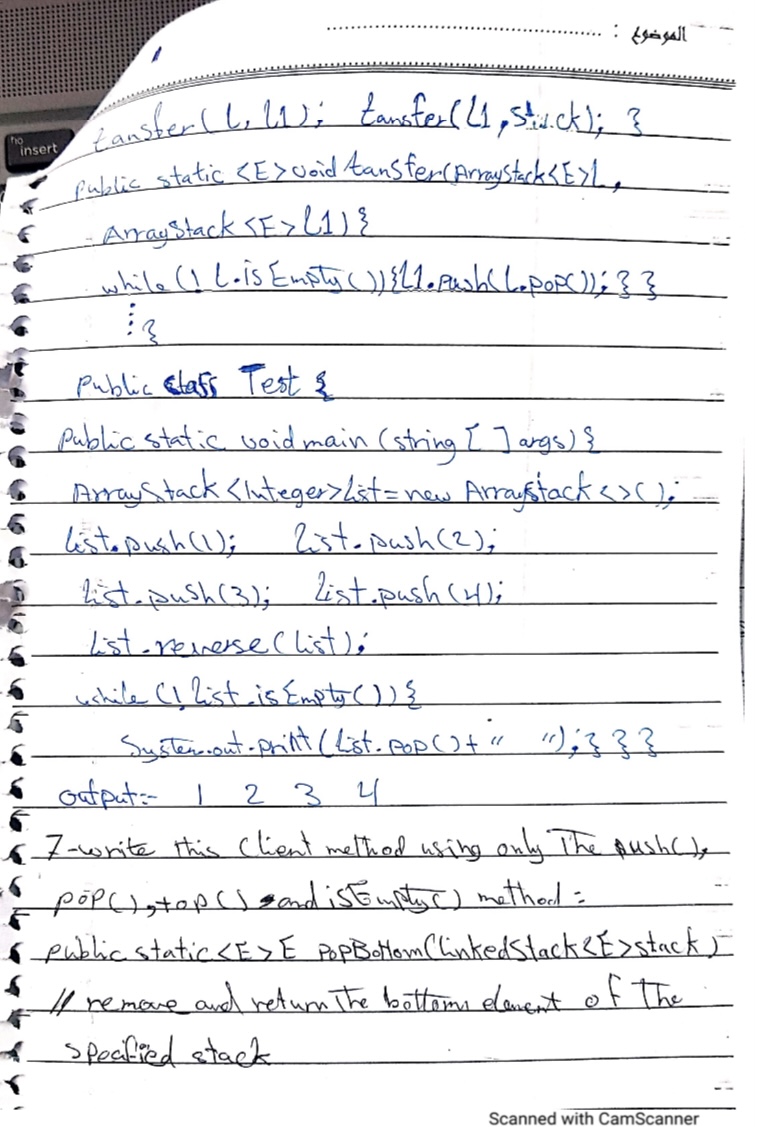 الموضوع :
no
insert
tansfer(L, L1); tansfer(L1, stack); }
public static <E> void tansfer(ArrayStack<E> L,
ArrayStack <E> L1) {
while (! L.isEmpty()) {L1.push(L.pop()); } }
⋮ }
public class Test {
public static void main (string [ ] args) {
ArrayStack <Integer> list = new ArrayStack <>();
list.push(1); list.push(2);
list.push(3); list.push(4);
list.reverse(list);
while (! list.isEmpty()) {
System.out.print(list.pop() + " "); } } }
output:- 1 2 3 4
7-write this Client method using only The push(),
pop(), top() and isEmpty() method:
public static <E> E popBottom(linkedStack<E> stack)
// remove and return The bottom element of The
specified stack
Scanned with CamScanner